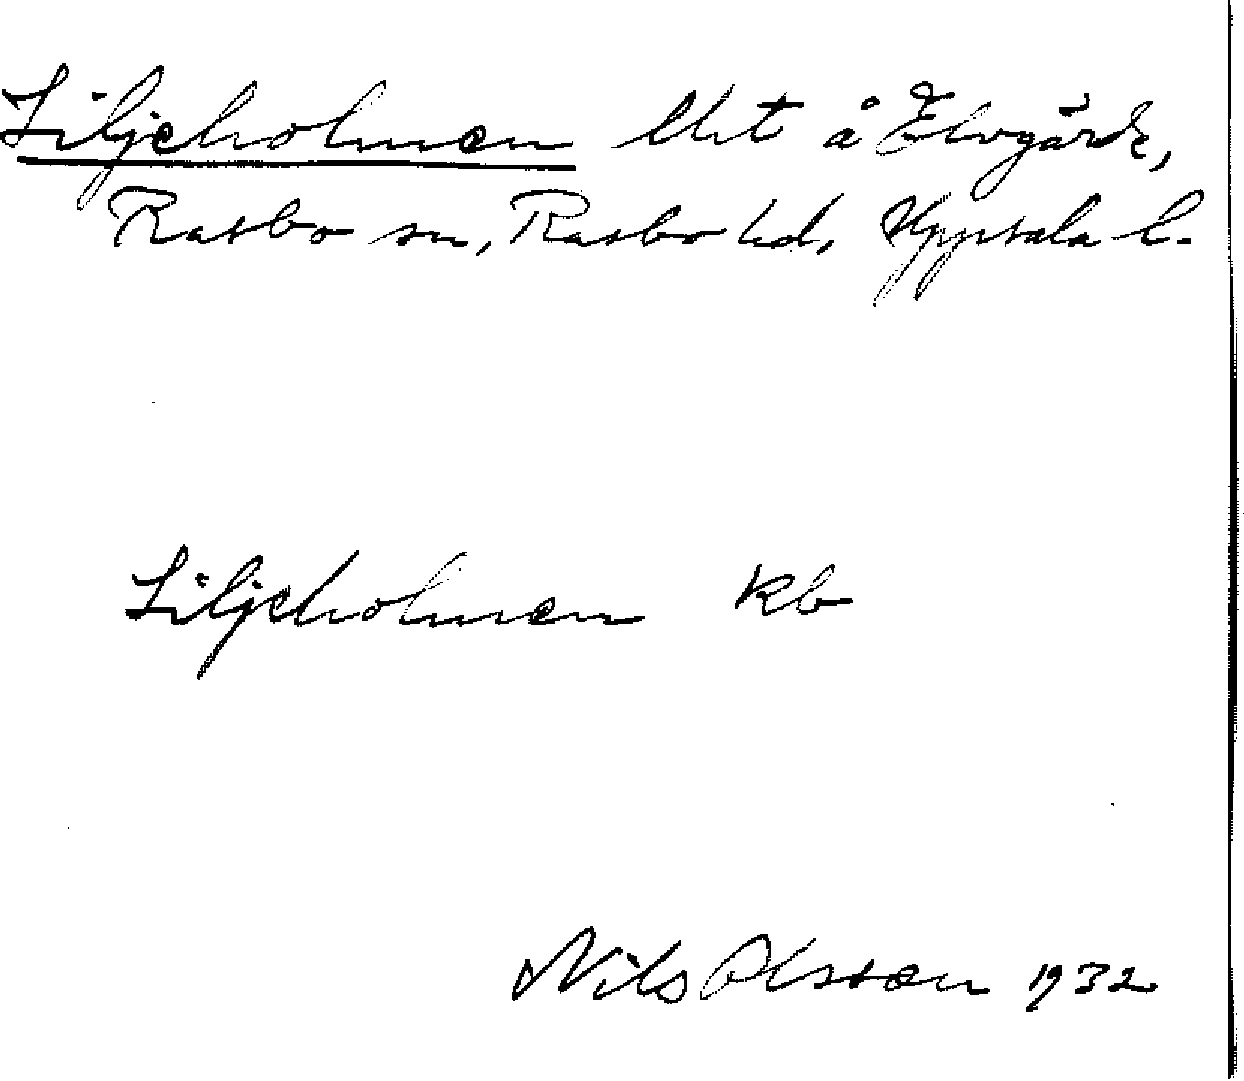 Liljeholmen lht å Elvgärde,
Rasbo sn, Rasbo hd, Uppsala l.
Liljeholmen kb
Nils Olsson 1932